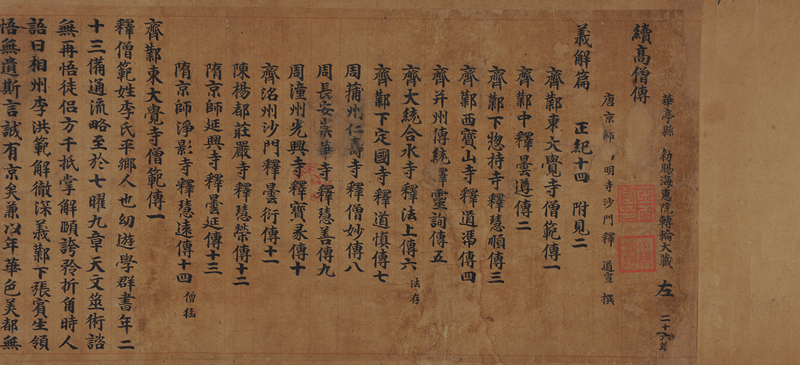 華亭縣 勑賜海慧院轉輪大藏 左
續高僧傳
唐京師 明寺沙門釋 道宣 撰
義解篇 正紀十四 附見二
齊鄴東大覺寺僧範傳一
齊鄴中釋曇遵傳二
齊鄴下惣持寺釋慧順傳三
齊鄴西寶山寺釋道憑傳四
齊并州傳統釋靈詢傳五
齊大統合水寺釋法上傳六 法存
齊鄴下定國寺釋道慎傳七
周蒲州仁壽寺釋僧妙傳八
周長安崇華寺釋慧善傳九
周潼州光興寺釋寶彖傳十
齊洺州沙門釋曇衍傳十一
陳楊都莊嚴寺釋慧榮傳十二
隋京師延興寺釋曇延傳十三
隋京師淨影寺釋慧遠傳十四 僧猛
齊鄴東大覺寺僧範傳一
釋僧範姓李氏平鄉人也幼遊學群書年二
十三備通流略至於七曜九章天文筮術諮
無再悟徒侶方千抵掌解頤誇矜折角時人
語曰相州李洪範解徹深義鄴下張賓生領
悟無遺斯言誠有亰矣兼以年華色美都無